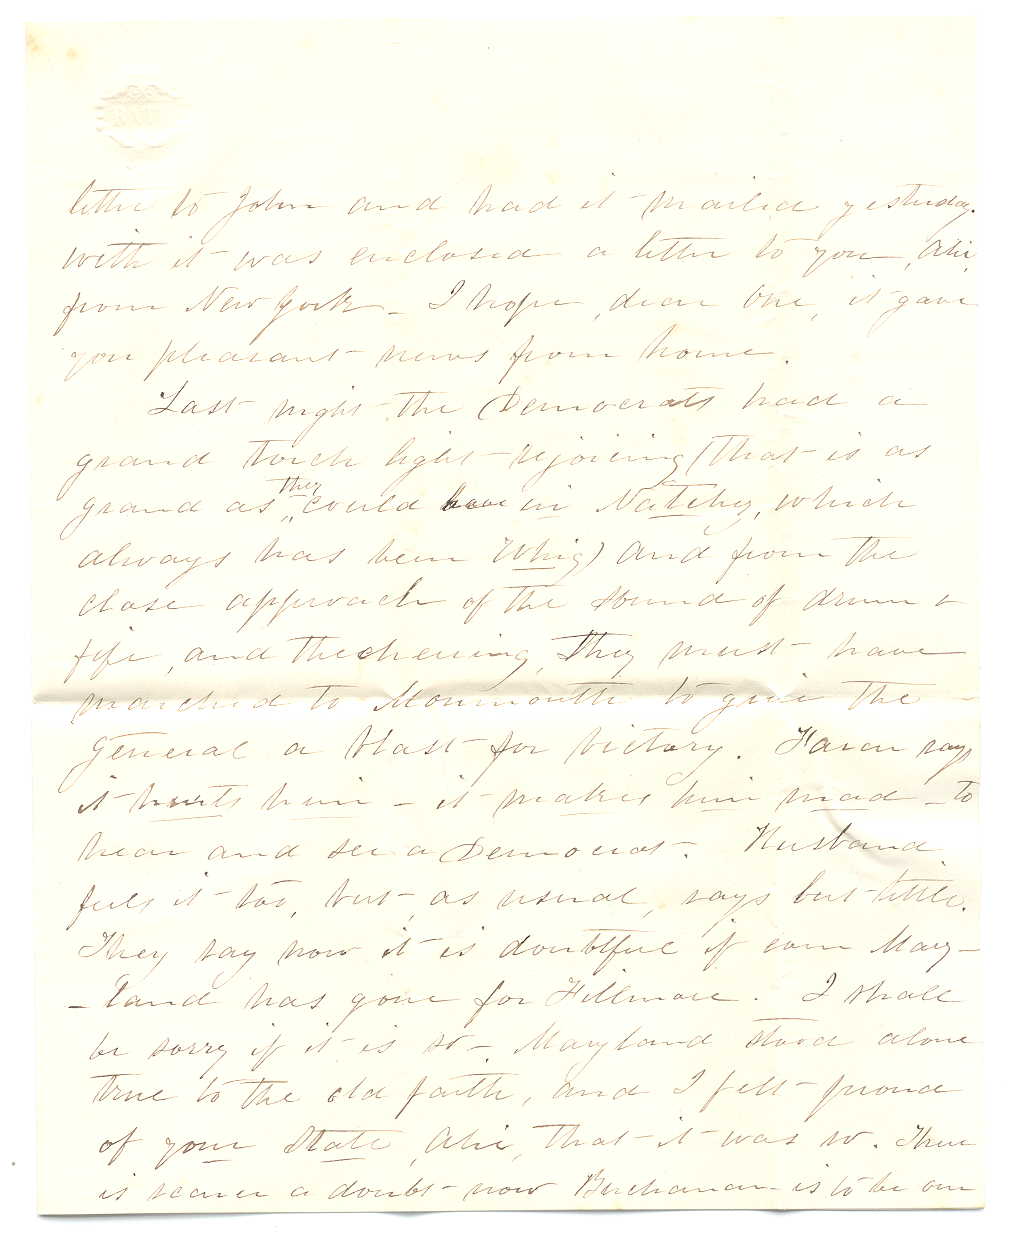 letter to John and had it mailed yesterday.
with it was enclosed a letter to you, Alie,
from New York – I hope, dear One, it gave
you pleasant news from home.
Last night the Democrats had a
grand torch light rejoicing (that is as
grand as they could have in Natchez, which
always has been Whig) and from the
close approach of the sound of drum &
fife, and the cheering, they must have
marched to Monmouth to give the
General a blast for victory. Faran says
it hurts him – it makes him mad – to
hear and see a Democrat. Husband
feels it too, but, as usual, says but little.
They say now it is doubtful if even Mary-
-land has gone for Fillmore. I shall
be sorry if it is so – Maryland stood alone
true to the old faith, and I felt proud
of your State, Alie, that it was so. There
is scarce a doubt now Buchanan is to be our